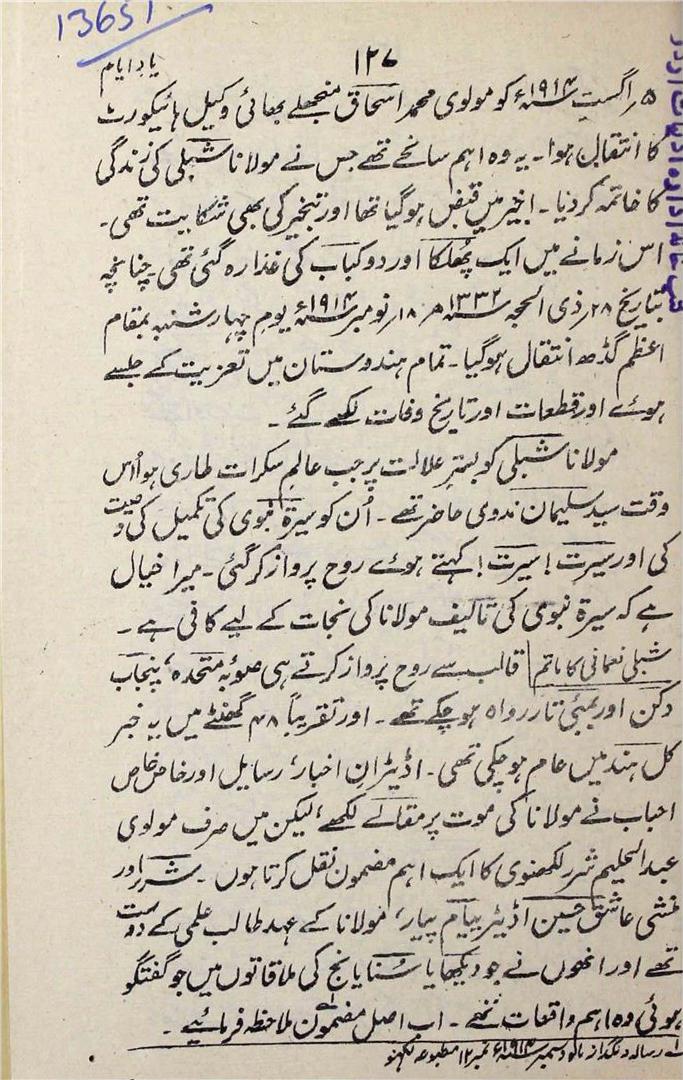 13651
یاد ایام
۱۲۷
۵؍اگست ۱۹۱۴ء کو مولوی محمد اسحاق منجھلے بھائی وکیل ہائیکورٹ
کا انتقال ہوا۔ یہ وہ اہم سانحے تھے جس نے مولانا شبلی کی زندگی
کا خاتمہ کر دیا۔ اخیر میں قبض ہوگیا تھا اور تبخیر کی بھی شکایت تھی۔
اس زمانے میں ایک پُھلکا اور دو کباب کی غذا رہ گئی تھی۔ چنانچہ
بتاریخ ۲۸؍ذی الحجہ ۱۳۳۲ھ ۱۸؍نومبر ۱۹۱۴ء یوم چہارشنبہ بمقام
اعظم گڈھ انتقال ہوگیا۔ تمام ہندوستان میں تعزیت کے جلسے
ہوئے اور قطعات اور تاریخ وفات لکھے گئے۔
مولانا شبلی کو بستر علالت پر جب عالم سکرات طاری ہوا اُس
وقت سید سلیمان ندوی حاضر تھے۔ اُن کو سیرۃ نبوی کی تکمیل کی وصیت
کی اور سیرت! سیرت! کہتے ہوئے روح پرواز کر گئی۔ میرا خیال
ہے کہ سیرۃ نبوی کی تالیف مولانا کی نجات کے لیے کافی ہے۔
شبلی نعمانی کا ماتم قالب سے روح پرواز کرتے ہی صوبۂ متحدہ، پنجاب
دکن اور بمبئی تار رواہ ہو چکے تھے۔ اور تقریباً ۴۸ گھنٹے میں یہ خبر
کل ہند میں عام ہو چکی تھی۔ اڈیٹران اخبار، رسایل اور خاص خاص
احباب نے مولانا کی موت پر مقالے لکھے، لیکن میں صرف مولوی
عبدالحلیم شرر لکھنوی کا ایک اہم مضمون نقل کرتا ہوں۔ شرر اور
منشی عاشق حسین اڈیٹر پیام پیار، مولانا کے عہد طالب علمی کے دوست
تھے اور انھوں نے جو دیکھا یا سُنا یا نج کی ملاقاتوں میں جو گفتگو
ہوئی وہ اہم واقعات تھے۔ اب اصل مضمون ملاحظہ فرمائیے۔
۱؎ رسالہ دلگداز ماہ دسمبر ۱۹۱۴ء نمبر ۱۲ مطبوعہ لکھنؤ